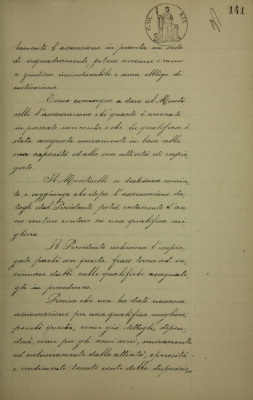 141
lamento l'assunzione in pianta in sede
di inquadramento potrà avvenire o meno
a giudizio insindacabile e senza obbligo di
motivazione.
Tiene comunque a dare al Monti-
celli l'assicurazione che quanto è avvenuto
in passato non conta e che la qualifica è
stata assegnata unicamente in base alla
sua capacità ed alla sua attività di impie-
gato.
Il Monticelli si dichiara convin-
to e soggiunge che dopo l'assicurazione da-
tagli dal Presidente potrà certamente l'an-
no venturo contare su una qualifica mi-
gliore.
Il Presidente richiama l'impie-
gato perchè con questa frase torna ad in-
sinuare dubbi sulle qualifiche assegnate-
gli in precedenza.
Precisa che non ha dato nessuna
assicurazione per una qualifica migliore,
perchè questa, come già dettogli, dipen-
derà, come per gli anni scorsi, unicamente
ed esclusivamente dalla attività, operosità
e rendimento tenuto conto delle